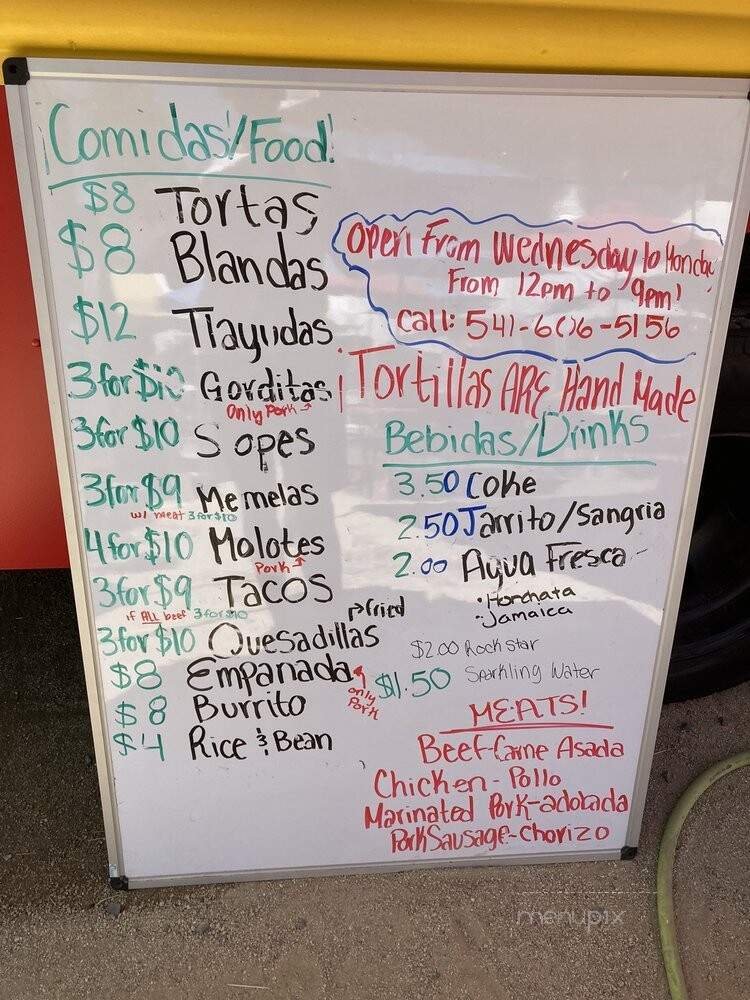 ¡Comidas!/Food!
$8 Tortas
$8 Blandas
$12 Tlayudas
3 for $10 Gorditas
Only Pork
3 for $10 Sopes
3 for $9 Memelas
w/ meat 3 for $10
4 for $10 Molotes
Pork
3 for $9 Tacos
if ALL beef 3 for $10
3 for $10 Quesadillas
fried
$8 Empanada
only Pork
$8 Burrito
$4 Rice & Bean
Open From Wednesday to Monday
From 12pm to 9pm!
Call: 541-606-5156
¡Tortillas ARE Hand Made
Bebidas/Drinks
3.50 Coke
2.50 Jarrito/Sangria
2.00 Agua Fresca
• Horchata
• Jamaica
$2.00 Rockstar
$1.50 Sparkling Water
MEATS!
Beef-Carne Asada
Chicken - Pollo
Marinated Pork-adobada
Pork Sausage-Chorizo
menupix